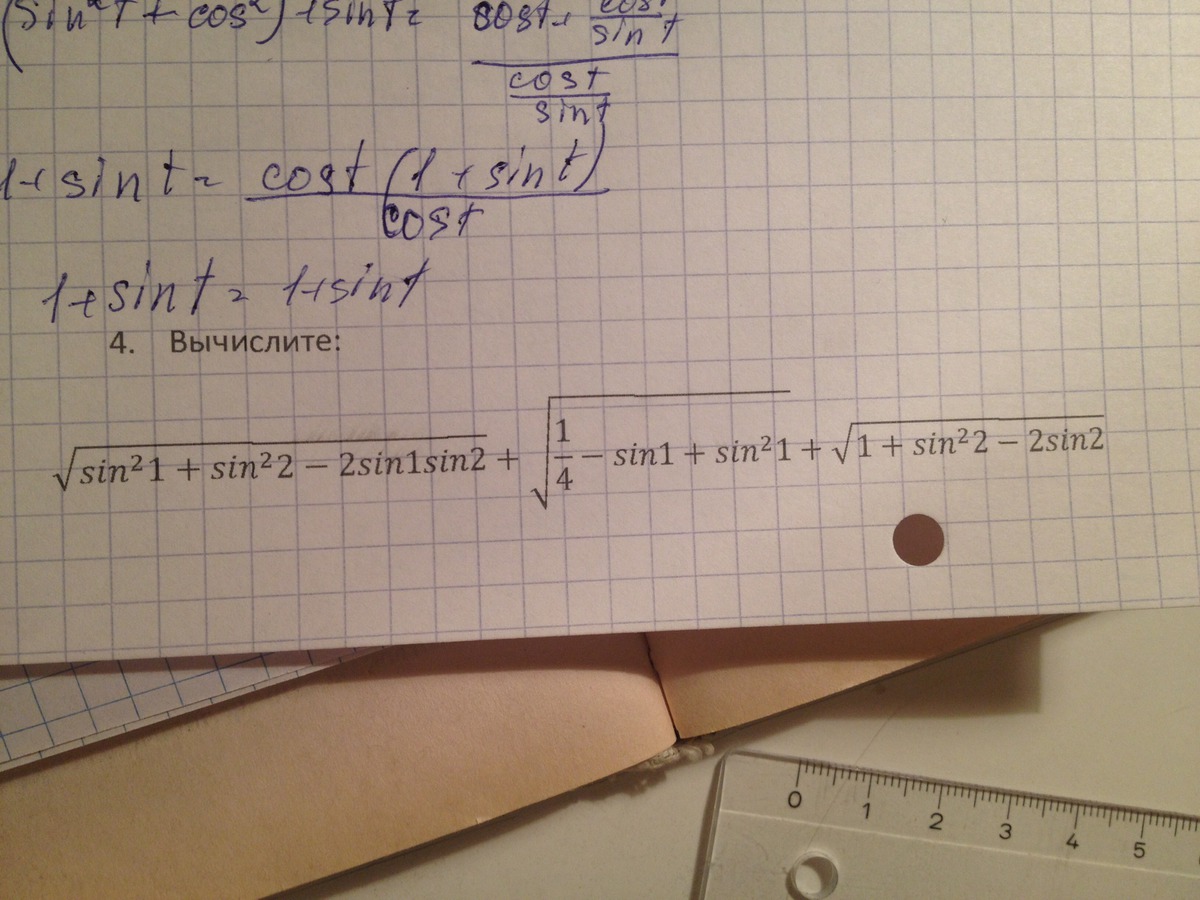 (sin²t + cos²) + sint = (cost + cost/sint)/(cost/sint)
1 + sin t = cost (1 + sin t)/cost
1 + sin t = 1 + sin t
4. Вычислите:
√(sin²1 + sin²2 − 2sin1sin2) + √(1/4 − sin1 + sin²1) + √(1 + sin²2 − 2sin2)
0 1 2 3 4 5